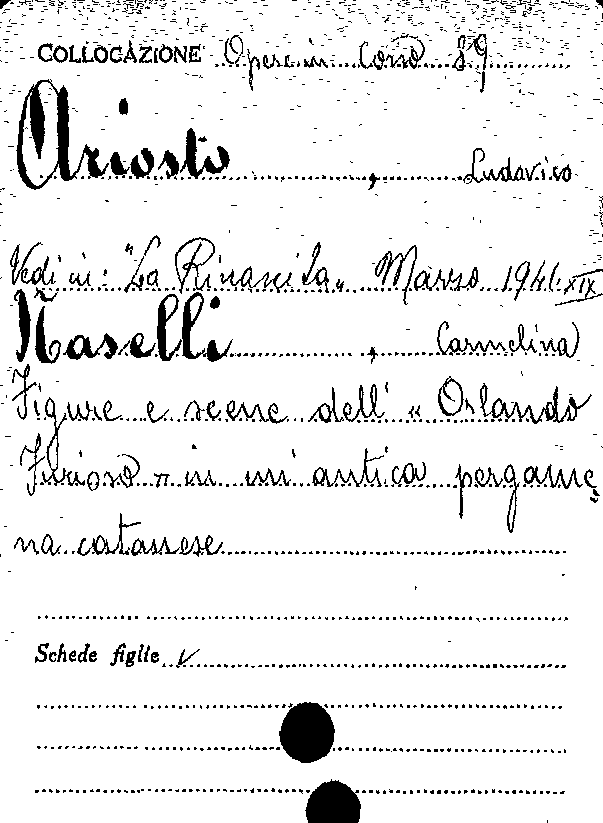 COLLOCAZIONE Opere in Corso 29
Ariosto, Ludovico
Vedi in: "La Rinascita" Marzo 1941.XIX
Naselli, Carmelina
Figure e scene dell' « Orlando
Furioso » in un' antica pergame=
na catanese
Schede figlie V